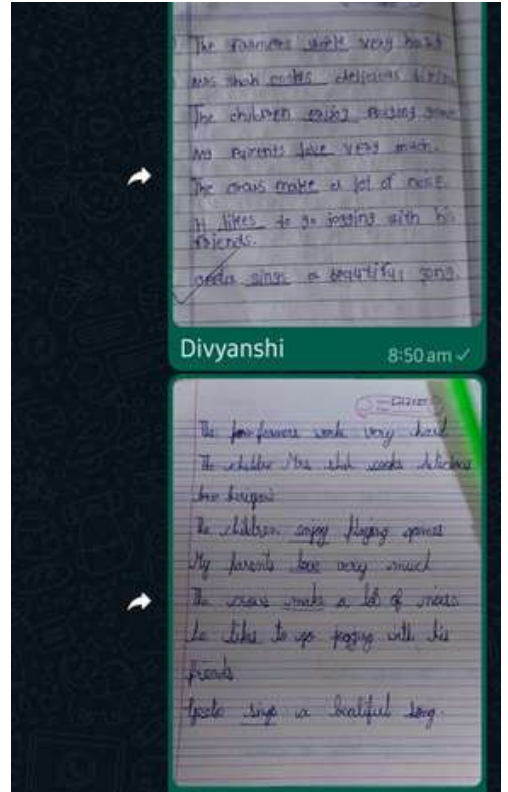 The farmers work very hard
Mrs shah cooks delicious
The children enjoy Playing game
My Parents love very much.
The crows make a lot of noise.
H likes to go jogging with his
friends.
sings a beautiful song.
Divyanshi
8:50 am
The farmers work very hard
The childre Mrs shah cooks delicious
The children enjoy playing games
My parents love very much
The crows make a lot of
he likes to go jogging with his
friends
Geeta sings a beatiful song.